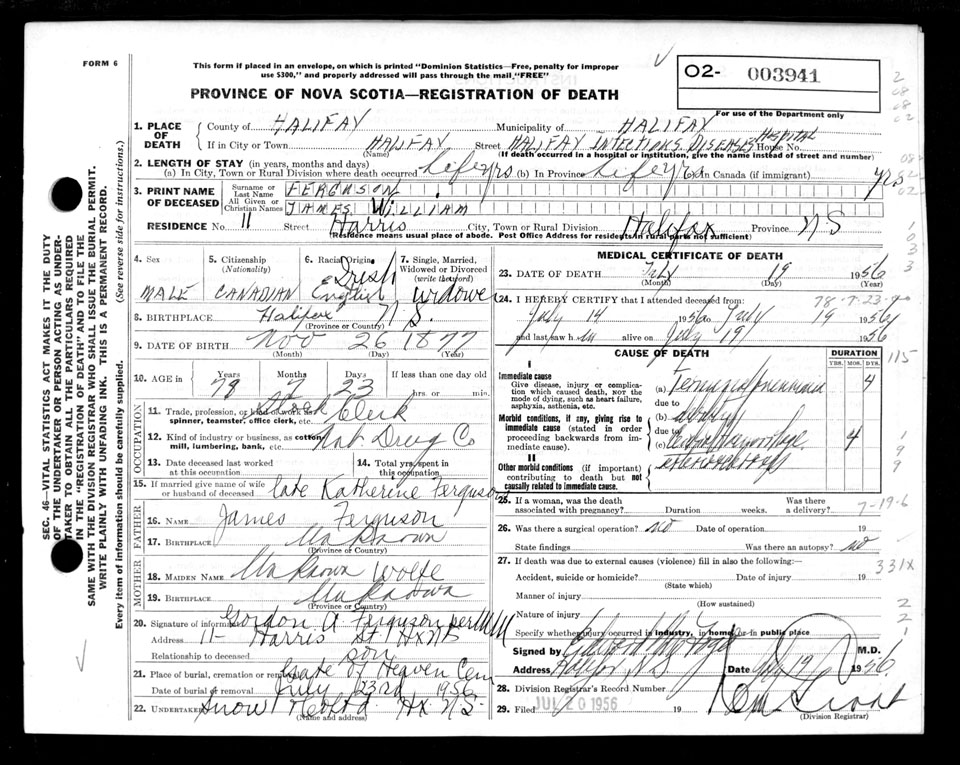 FORM 6
This form if placed in an envelope, on which is printed "Dominion Statistics—Free, penalty for improper
use $300," and properly addressed will pass through the mail "FREE"
PROVINCE OF NOVA SCOTIA—REGISTRATION OF DEATH
O2- 003941
For use of the Department only
SEC. 46—VITAL STATISTICS ACT MAKES IT THE DUTY
OF THE UNDERTAKER OR PERSON ACTING AS UNDER-
TAKER TO OBTAIN ALL THE PARTICULARS REQUIRED
IN THE "REGISTRATION OF DEATH" AND TO FILE THE
SAME WITH THE DIVISION REGISTRAR WHO SHALL ISSUE THE BURIAL PERMIT.
WRITE PLAINLY WITH UNFADING INK. THIS IS A PERMANENT RECORD.
Every item of information should be carefully supplied. (See reverse side for instructions.)
1. PLACE OF DEATH
County of HALIFAX Municipality of HALIFAX
If in City or Town HALIFAX Street HALIFAX INFECTIOUS DISEASES HOSPITAL House No.
(Name) (If death occurred in a hospital or institution, give the name instead of street and number)
2. LENGTH OF STAY (in years, months and days)
(a) In City, Town or Rural Division where death occurred Life yrs (b) In Province Life yrs (c) In Canada (if immigrant) yrs
3. PRINT NAME OF DECEASED
Surname or Last Name FERGUSON
All Given or Christian Names JAMES WILLIAM
RESIDENCE No. 11 Street Harris City, Town or Rural Division Halifax Province NS
(Residence means usual place of abode. Post Office Address for residents in rural parts not sufficient)
4. Sex MALE
5. Citizenship (Nationality) CANADIAN
6. Racial Origin Irish English
7. Single, Married, Widowed or Divorced (write the word) widowe
8. BIRTHPLACE Halifax N S.
(Province or Country)
9. DATE OF BIRTH Nov 26 1877
(Month) (Day) (Year)
10. AGE in Years 78 Months 7 Days 23 If less than one day old hrs. or min.
OCCUPATION
11. Trade, profession, or kind of work as spinner, teamster, office clerk, etc. Clerk
12. Kind of industry or business, as cotton mill, lumbering, bank, etc. Nat Drug Co
13. Date deceased last worked at this occupation
14. Total yrs. spent in this occupation
15. If married give name of wife or husband of deceased late Katherine Ferguson
FATHER
16. NAME James Ferguson
17. BIRTHPLACE Unknown
(Province or Country)
MOTHER
18. MAIDEN NAME Unknown Wolfe
19. BIRTHPLACE Unknown
(Province or Country)
20. Signature of informant Gordon A Ferguson per
Address 11 Harris St Hx NS
Relationship to deceased son
21. Place of burial, cremation or removal Gate of Heaven Cem
Date of burial or removal July 23rd 1956
22. UNDERTAKER Snow Hx NS
(Name and address)
MEDICAL CERTIFICATE OF DEATH
23. DATE OF DEATH July 19 1956
(Month) (Day) (Year)
24. I HEREBY CERTIFY that I attended deceased from:
July 14 1956 to July 19 1956
and last saw him alive on July 19 1956
CAUSE OF DEATH
DURATION
YRS. MOS. DYS.
I
Immediate cause
Give disease, injury or complication which caused death, NOT the mode of dying, such as heart failure, asphyxia, asthenia, etc.
(a) Terminal pneumonia 4
due to
Morbid conditions, if any, giving rise to immediate cause (stated in order proceeding backwards from immediate cause).
(b) debility
due to
(c) Cerebral hemorrhage 4
II
Other morbid conditions (if important) contributing to death but not causally related to immediate cause.
25. If a woman, was the death associated with pregnancy? Duration weeks. Was there a delivery?
7-19-6
26. Was there a surgical operation? no Date of operation 19
State findings Was there an autopsy? no
27. If death was due to external causes (violence) fill in also the following:—
331X
Accident, suicide or homicide? Date of injury 19
(State which)
Manner of injury
(How sustained)
Nature of injury
Specify whether injury occurred in industry, in home, or in public place
Signed by M.D.
Address Halifax, N.S. Date July 19 1956
28. Division Registrar's Record Number
29. Filed JUL 20 1956 19
(Division Registrar)